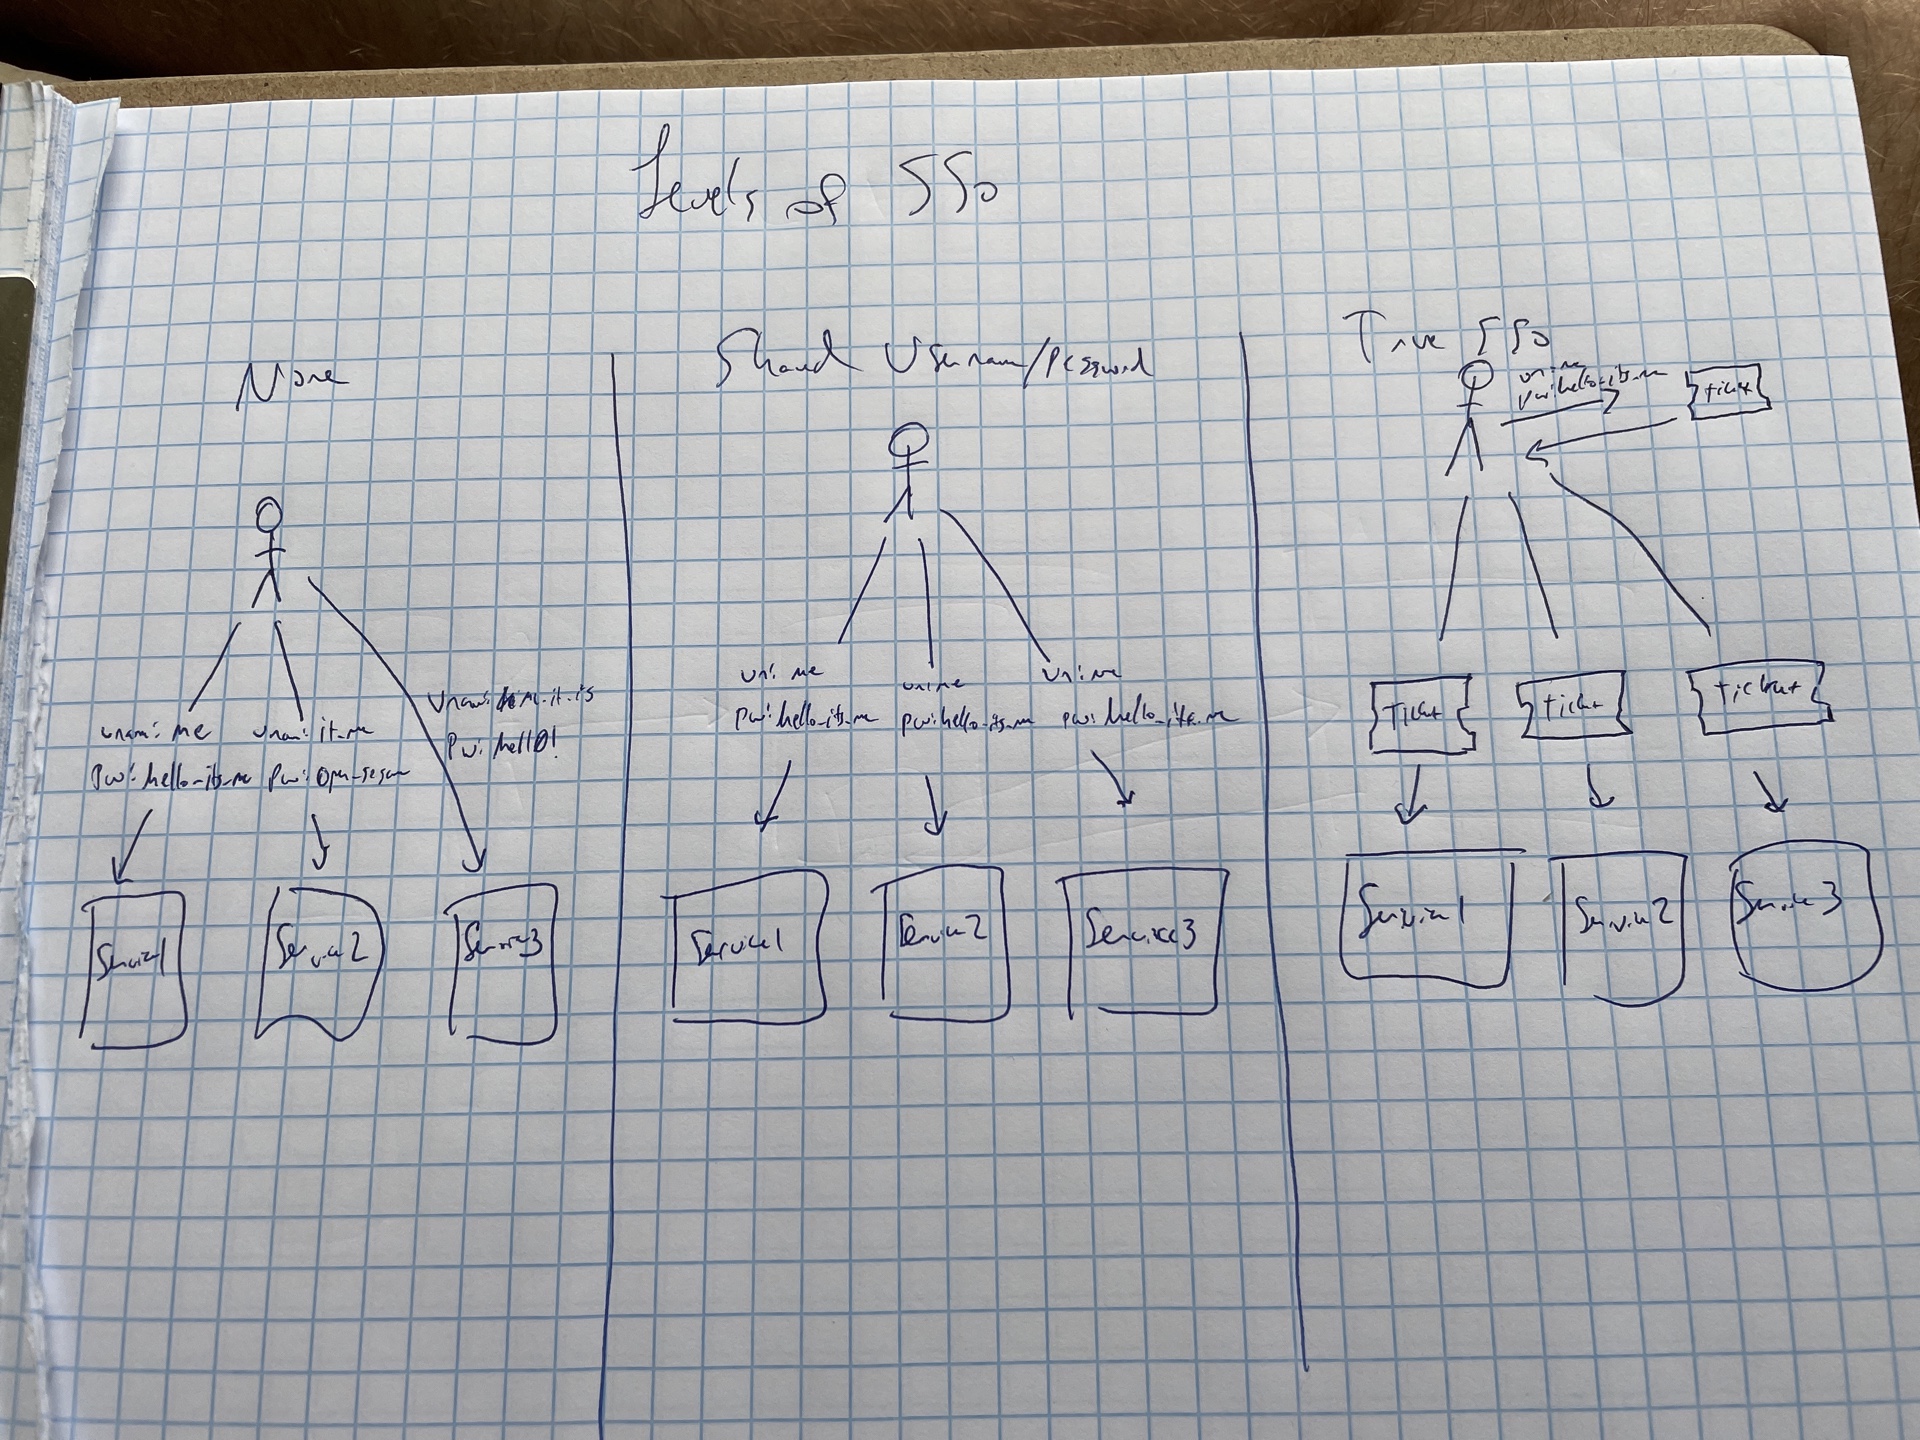 Levels of SSO
None
uname: me
pw: hello_its_me
uname: it_me
pw: open_sesame
uname: me_it_is
pw: hell0!
Service1
Service2
Service3
Shared Username/Password
un: me
pw: hello_its_me
un: me
pw: hello_its_me
un: me
pw: hello_its_me
Service1
Service2
Service3
True SSO
un: me
pw: hello_its_me
ticket
Ticket
Ticket
Ticket
Service1
Service2
Service3